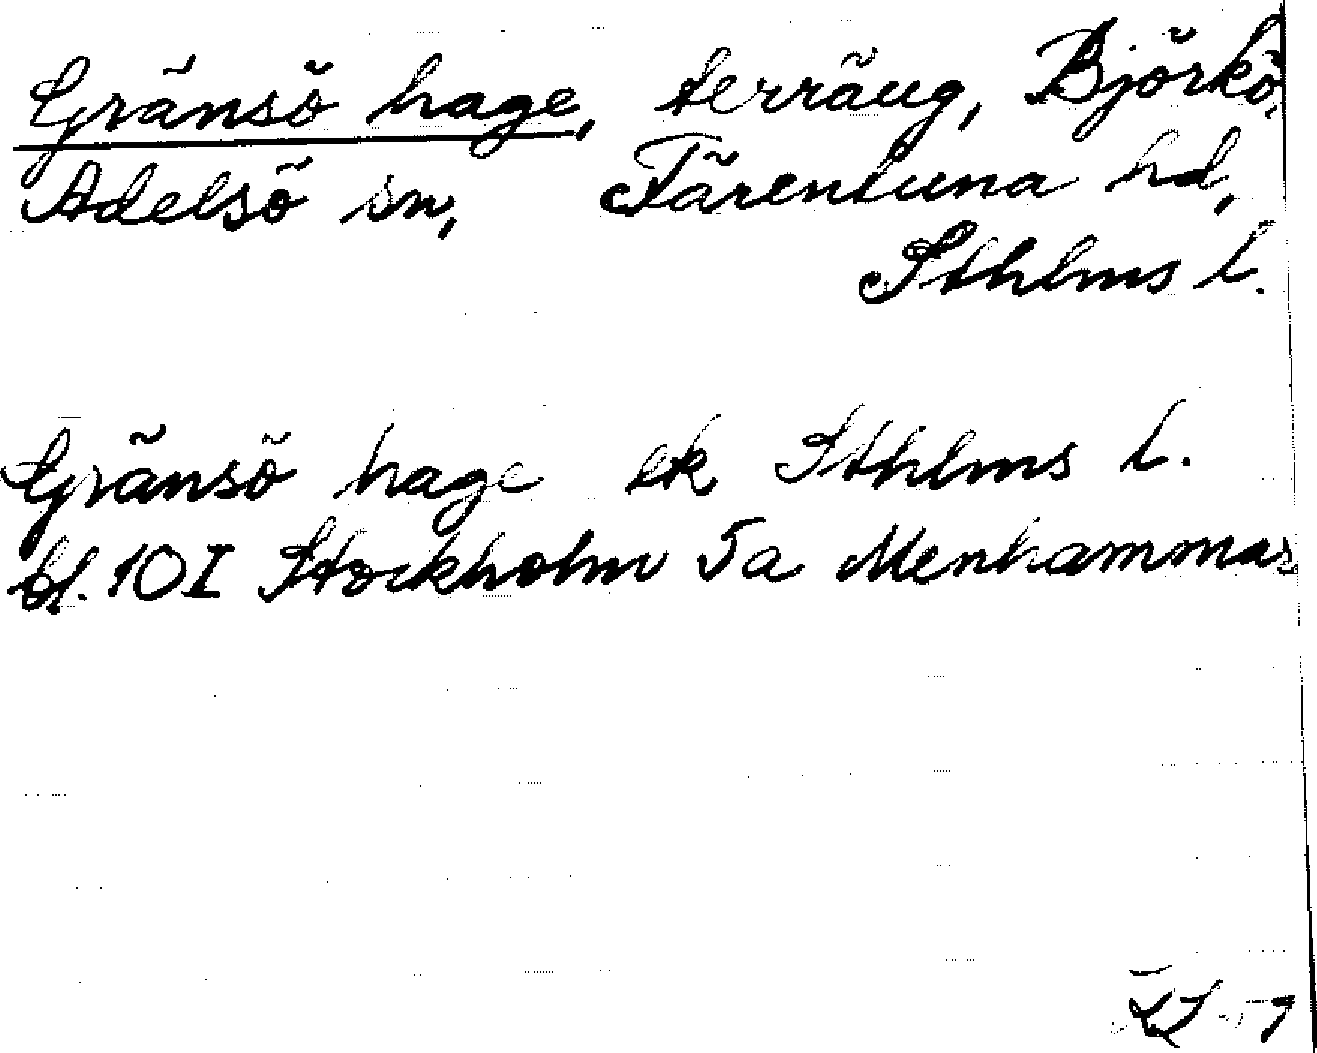 Gränsö hage, terräng, Björkö,
Adelsö sn, Färentuna hd,
Sthlms l.
Gränsö hage ek Sthlms l.
bl. 10I Stockholm 5a Menhammar